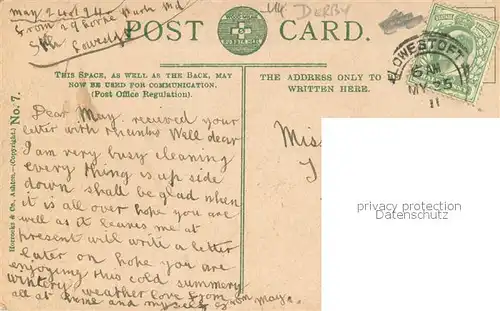 May 24th 1911
From 29
Sth Lowestoft
DERBY
POST CARD.
THIS SPACE, AS WELL AS THE BACK, MAY
NOW BE USED FOR COMMUNICATION.
(Post Office Regulation).
THE ADDRESS ONLY TO
WRITTEN HERE.
LOWESTOFT
6 AM
MY 25
11
Horrocks & Co, Ashton.—(Copyright.) No. 7.
Dear May. received your
letter with thanks Well dear
I am very busy cleaning
every thing is up side
down shall be glad when
it is all over hope you are
well as it leaves me at
present will write a letter
later on hope you are
enjoying this cold summery
wintery weather love from
all at home and myself from May.
Miss
privacy protection
Datenschutz